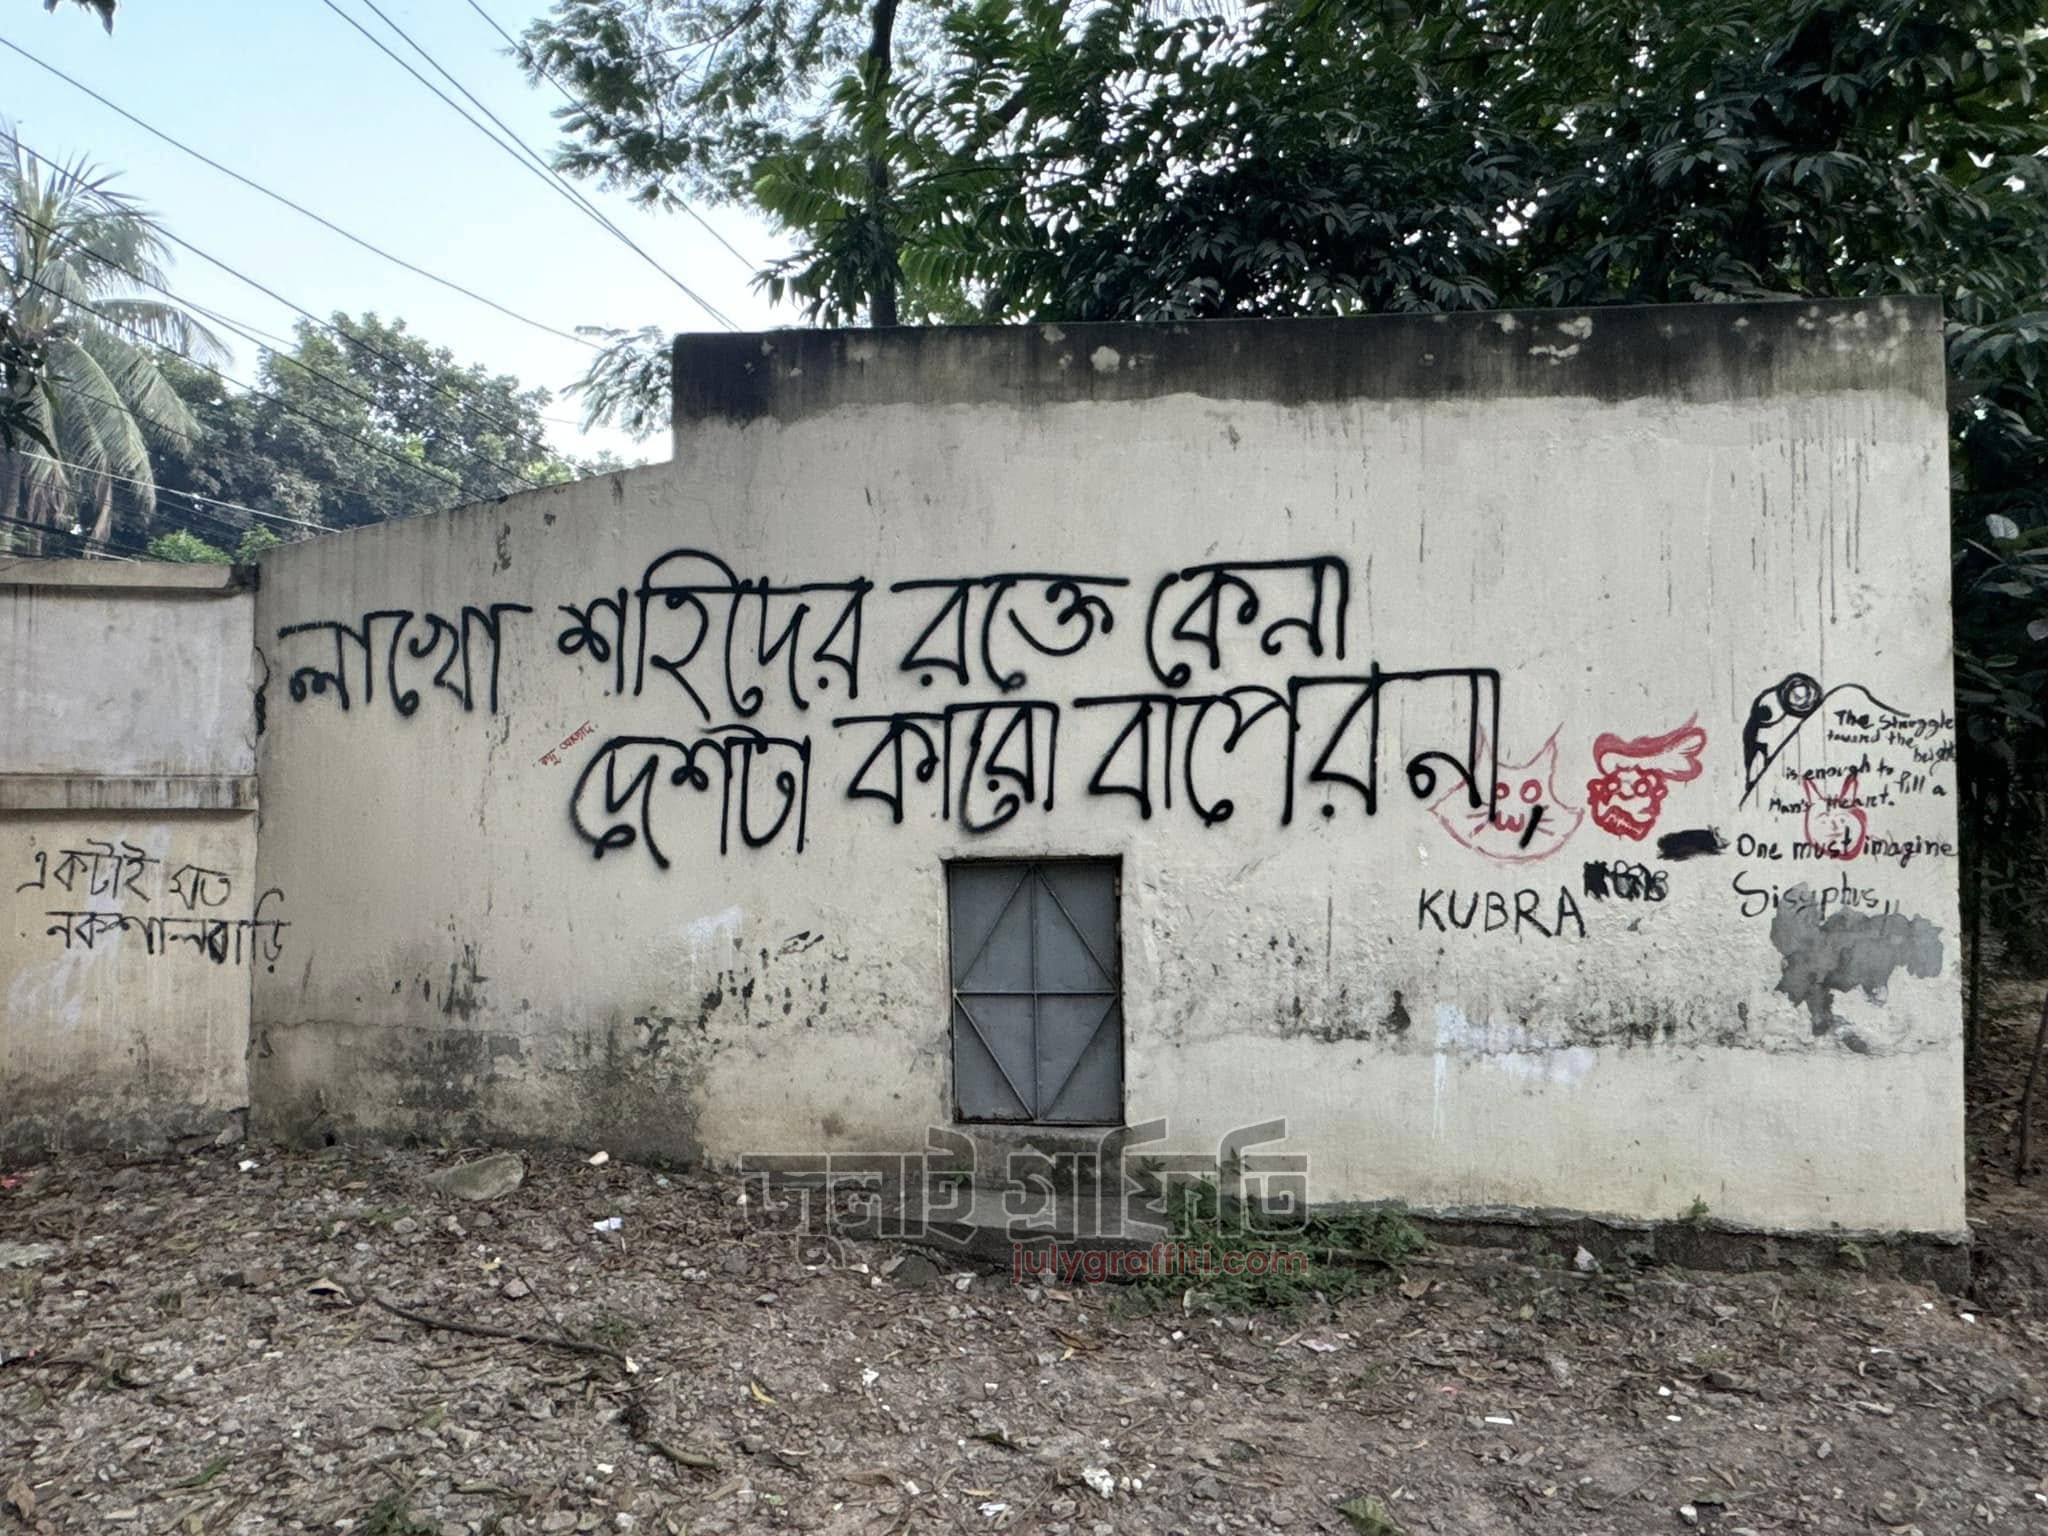 লাখো শহিদের রক্তে কেনা
দেশটা কারো বাপের না,
একটাই মত
নকশালবাড়ি
The Struggle
toward the
height
is enough to fill a
Man's Heart.
One must imagine
Sisyphus
KUBRA
জুলাই গ্রাফিতি
julygraffiti.com